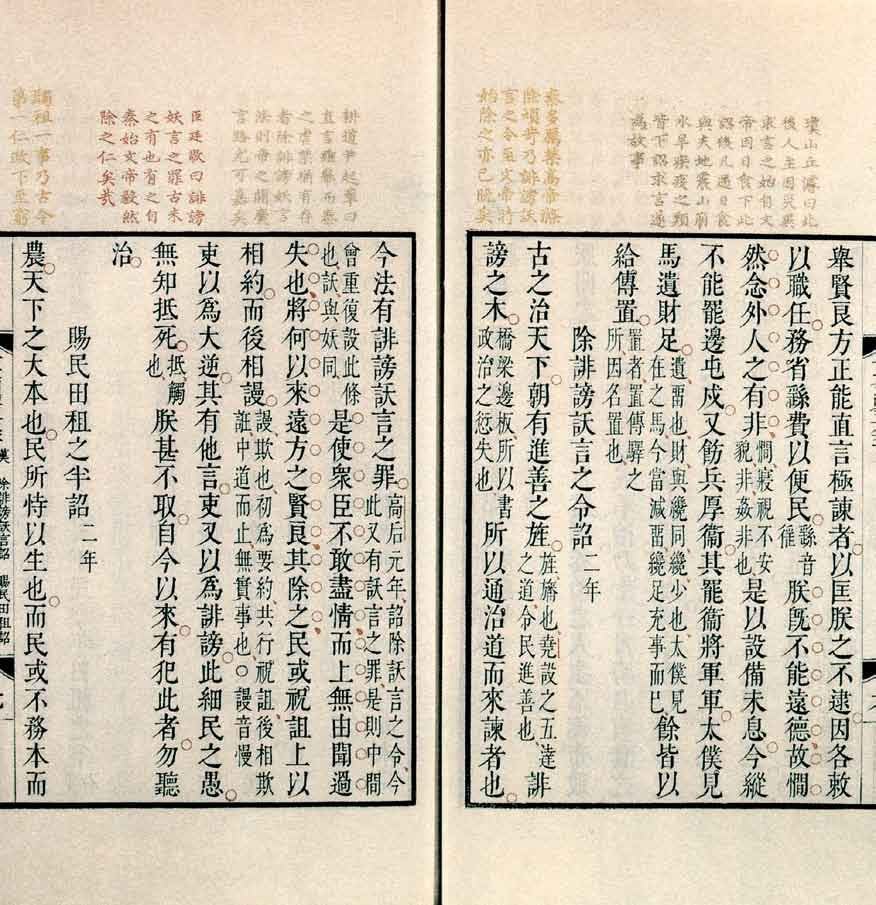 瓊山丘濬曰此
後人主因災異
求言之始自文
帝因日食下此
詔後凡遇日食
與夫地震山崩
水旱疾疫之類
皆下詔求言遂
爲故事
秦多厲禁高帝略
除煩苛乃誹謗訞
言之令至文帝時
始除之亦已晚矣
舉賢良方正能直言極諫者以匡朕之不逮因各敕
以職任務省繇費以便民繇音徭朕旣不能遠德故憪
然念外人之有非憪寢視不安貌非姦非也是以設備未息今縱
不能罷邊屯戍又飭兵厚衞其罷衞將軍軍太僕見
馬遺財足遺畱也財與纔同纔少也太僕見在之馬今當減畱纔足充事而已餘皆以
給傳置置者置傳驛之所因名置也
除誹謗訞言之令詔二年
古之治天下朝有進善之旌旌旛也堯設之五達之道令民進善也誹
謗之木橋梁邊板所以書政治之愆失也所以通治道而來諫者也
耕道尹起莘曰
直言極諫而秦
之虐禁猶有存
者除誹謗妖言
法則帝之開廣
言路尤可嘉矣
臣廷敬曰誹謗
妖言之罪古未
之有也有之自
秦始文帝毅然
除之仁矣哉
蠲租一事乃古今
第一仁政下至窮
今法有誹謗訞言之罪高后元年詔除訞言之令今此又有訞言之罪是則中間
會重復設此條也訞與妖同是使衆臣不敢盡情而上無由聞過
失也將何以來遠方之賢良其除之民或祝詛上以
相約而後相謾謾欺也初爲要約共行祝詛後相欺誑中道而止無實事也○謾音慢
吏以爲大逆其有他言吏又以爲誹謗此細民之愚
無知抵死抵觸也朕甚不取自今以來有犯此者勿聽
治
賜民田租之半詔二年
農天下之大本也民所恃以生也而民或不務本而
漢 除誹謗訞言詔 賜民田租詔